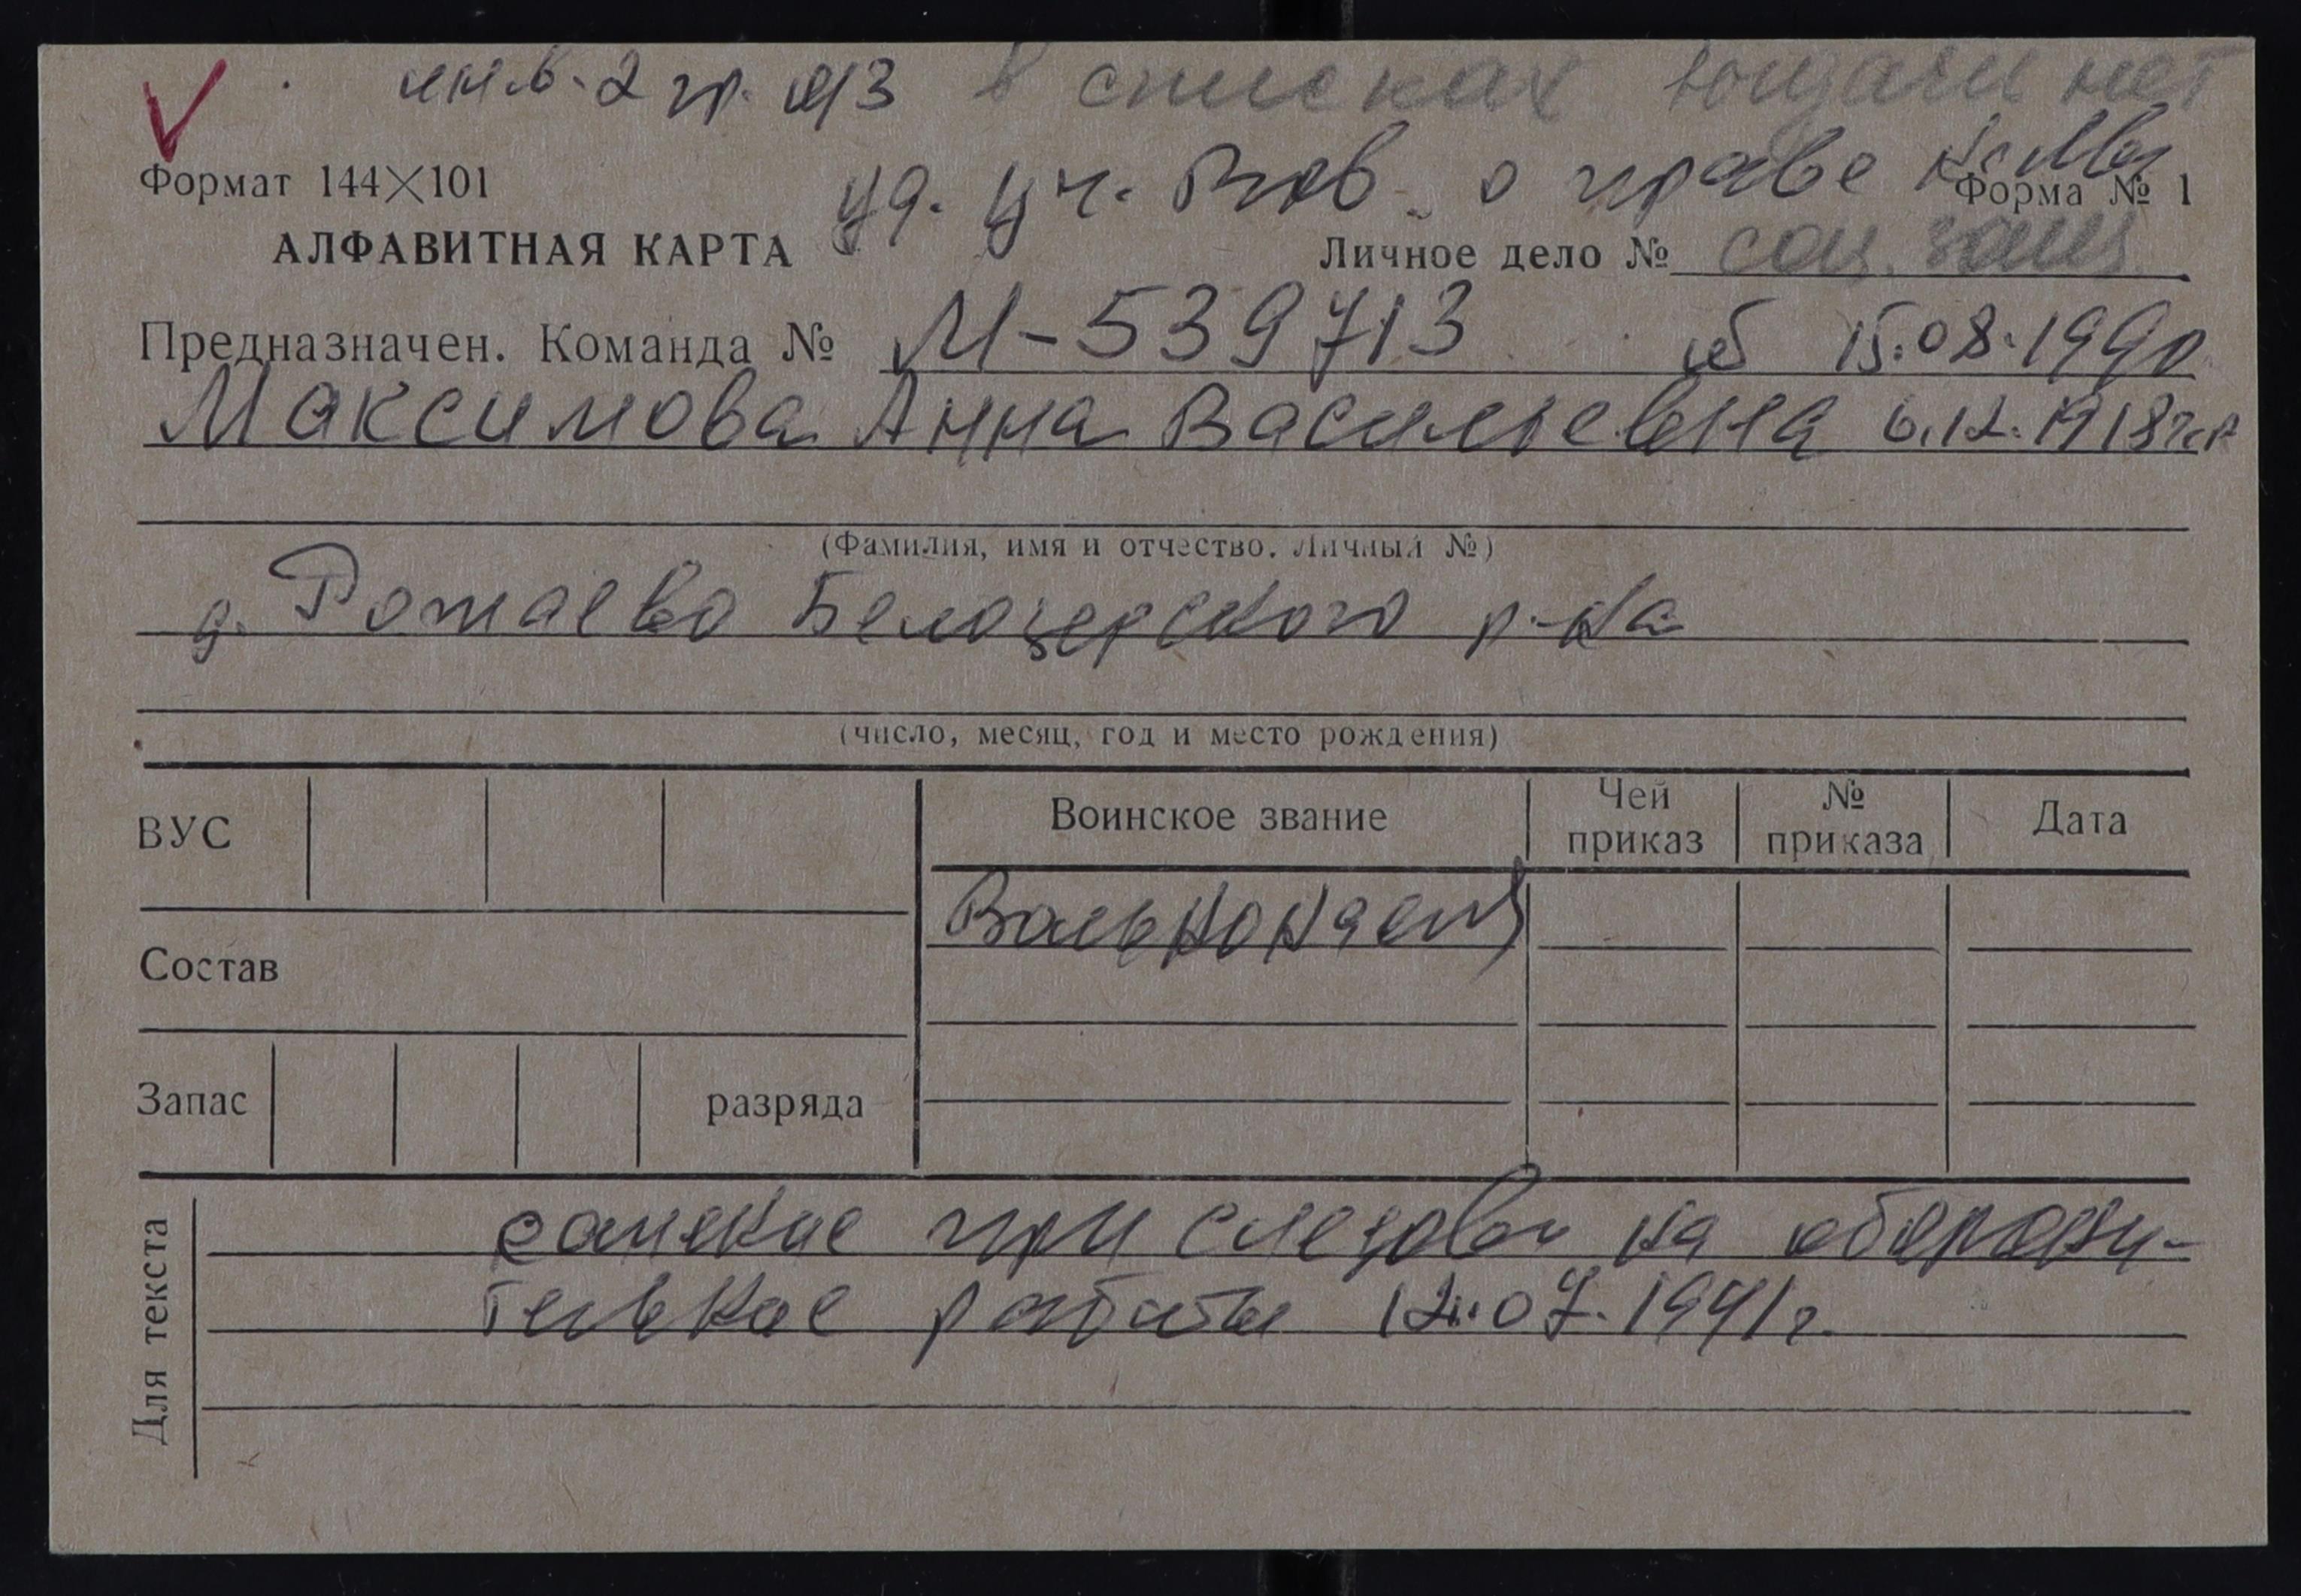 инв. 2 гр. о/з в списках выдачи нет
Формат 144×101
уд. уч. вов. о праве на льг
Форма № 1
АЛФАВИТНАЯ КАРТА
Личное дело № соц. защ
Предназначен. Команда № М-539713 от 15.08.1990
Максимова Анна Васильевна 6.12.1918 г.р
(Фамилия, имя и отчество. Личный №)
д. Ротаево Белозерского р-на
(число, месяц, год и место рождения)
ВУС
Воинское звание
Чей приказ
№ приказа
Дата
Вольнонаемн
Состав
Запас
разряда
Для текста
ранение при следов на оборони-
тельные работы 12.07.1941г.